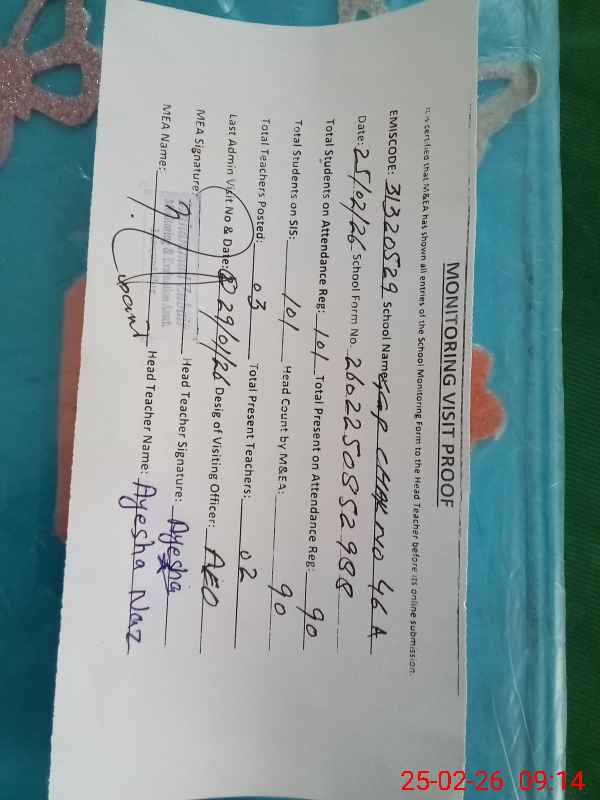 MONITORING VISIT PROOF
It is certified that M&EA has shown all entries of the School Monitoring Form to the Head Teacher before its online submission.
EMISCODE: 31320529 School Name: GGP CHAK NO 46 A
Date: 25/02/26 School Form No. 2602250852988
Total Students on Attendance Reg: 101 Total Present on Attendance Reg: 90
Total Students on SIS: 101 Head Count by M&EA: 90
Total Teachers Posted: 03 Total Present Teachers: 02
Last Admin Visit No & Date: 29/01/26 Desig of Visiting Officer: AEO
MEA Signature: Head Teacher Signature: Ayesha
MEA Name: Head Teacher Name: Ayesha Naz
25-02-26 09:14